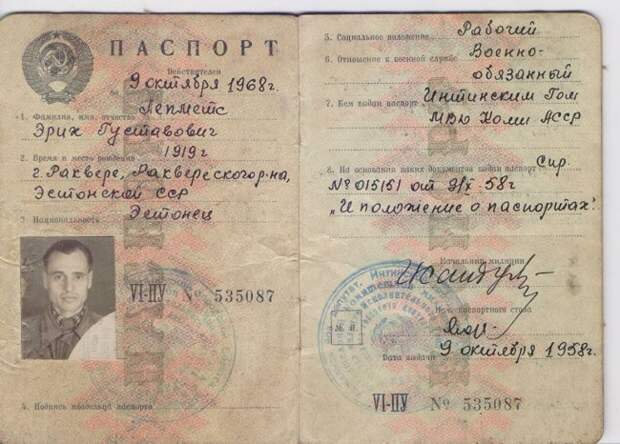 ПАСПОРТ
Действителен
9 октября 1968г.
Лепметс
1. Фамилия, имя, отчество
Эрих Густавович
2. Время и место рождения 1919г
г. Раквере, Раквереского р-на,
Эстонской ССР
3. Национальность Эстонец
VI-ПУ № 535087
4. Подпись владельца паспорта
5. Социальное положение Рабочий
6. Отношение к военной службе Военно-
обязанный
7. Кем выдан паспорт Интинским Гом
МВД Коми АССР
8. На основании каких документов выдан паспорт Спр.
№ 015151 от 9/X 58г
"И положение о паспортах"
Начальник милиции
Нач. паспортного стола
9 октября 1958г.
Дата выдачи
VI-ПУ № 535087